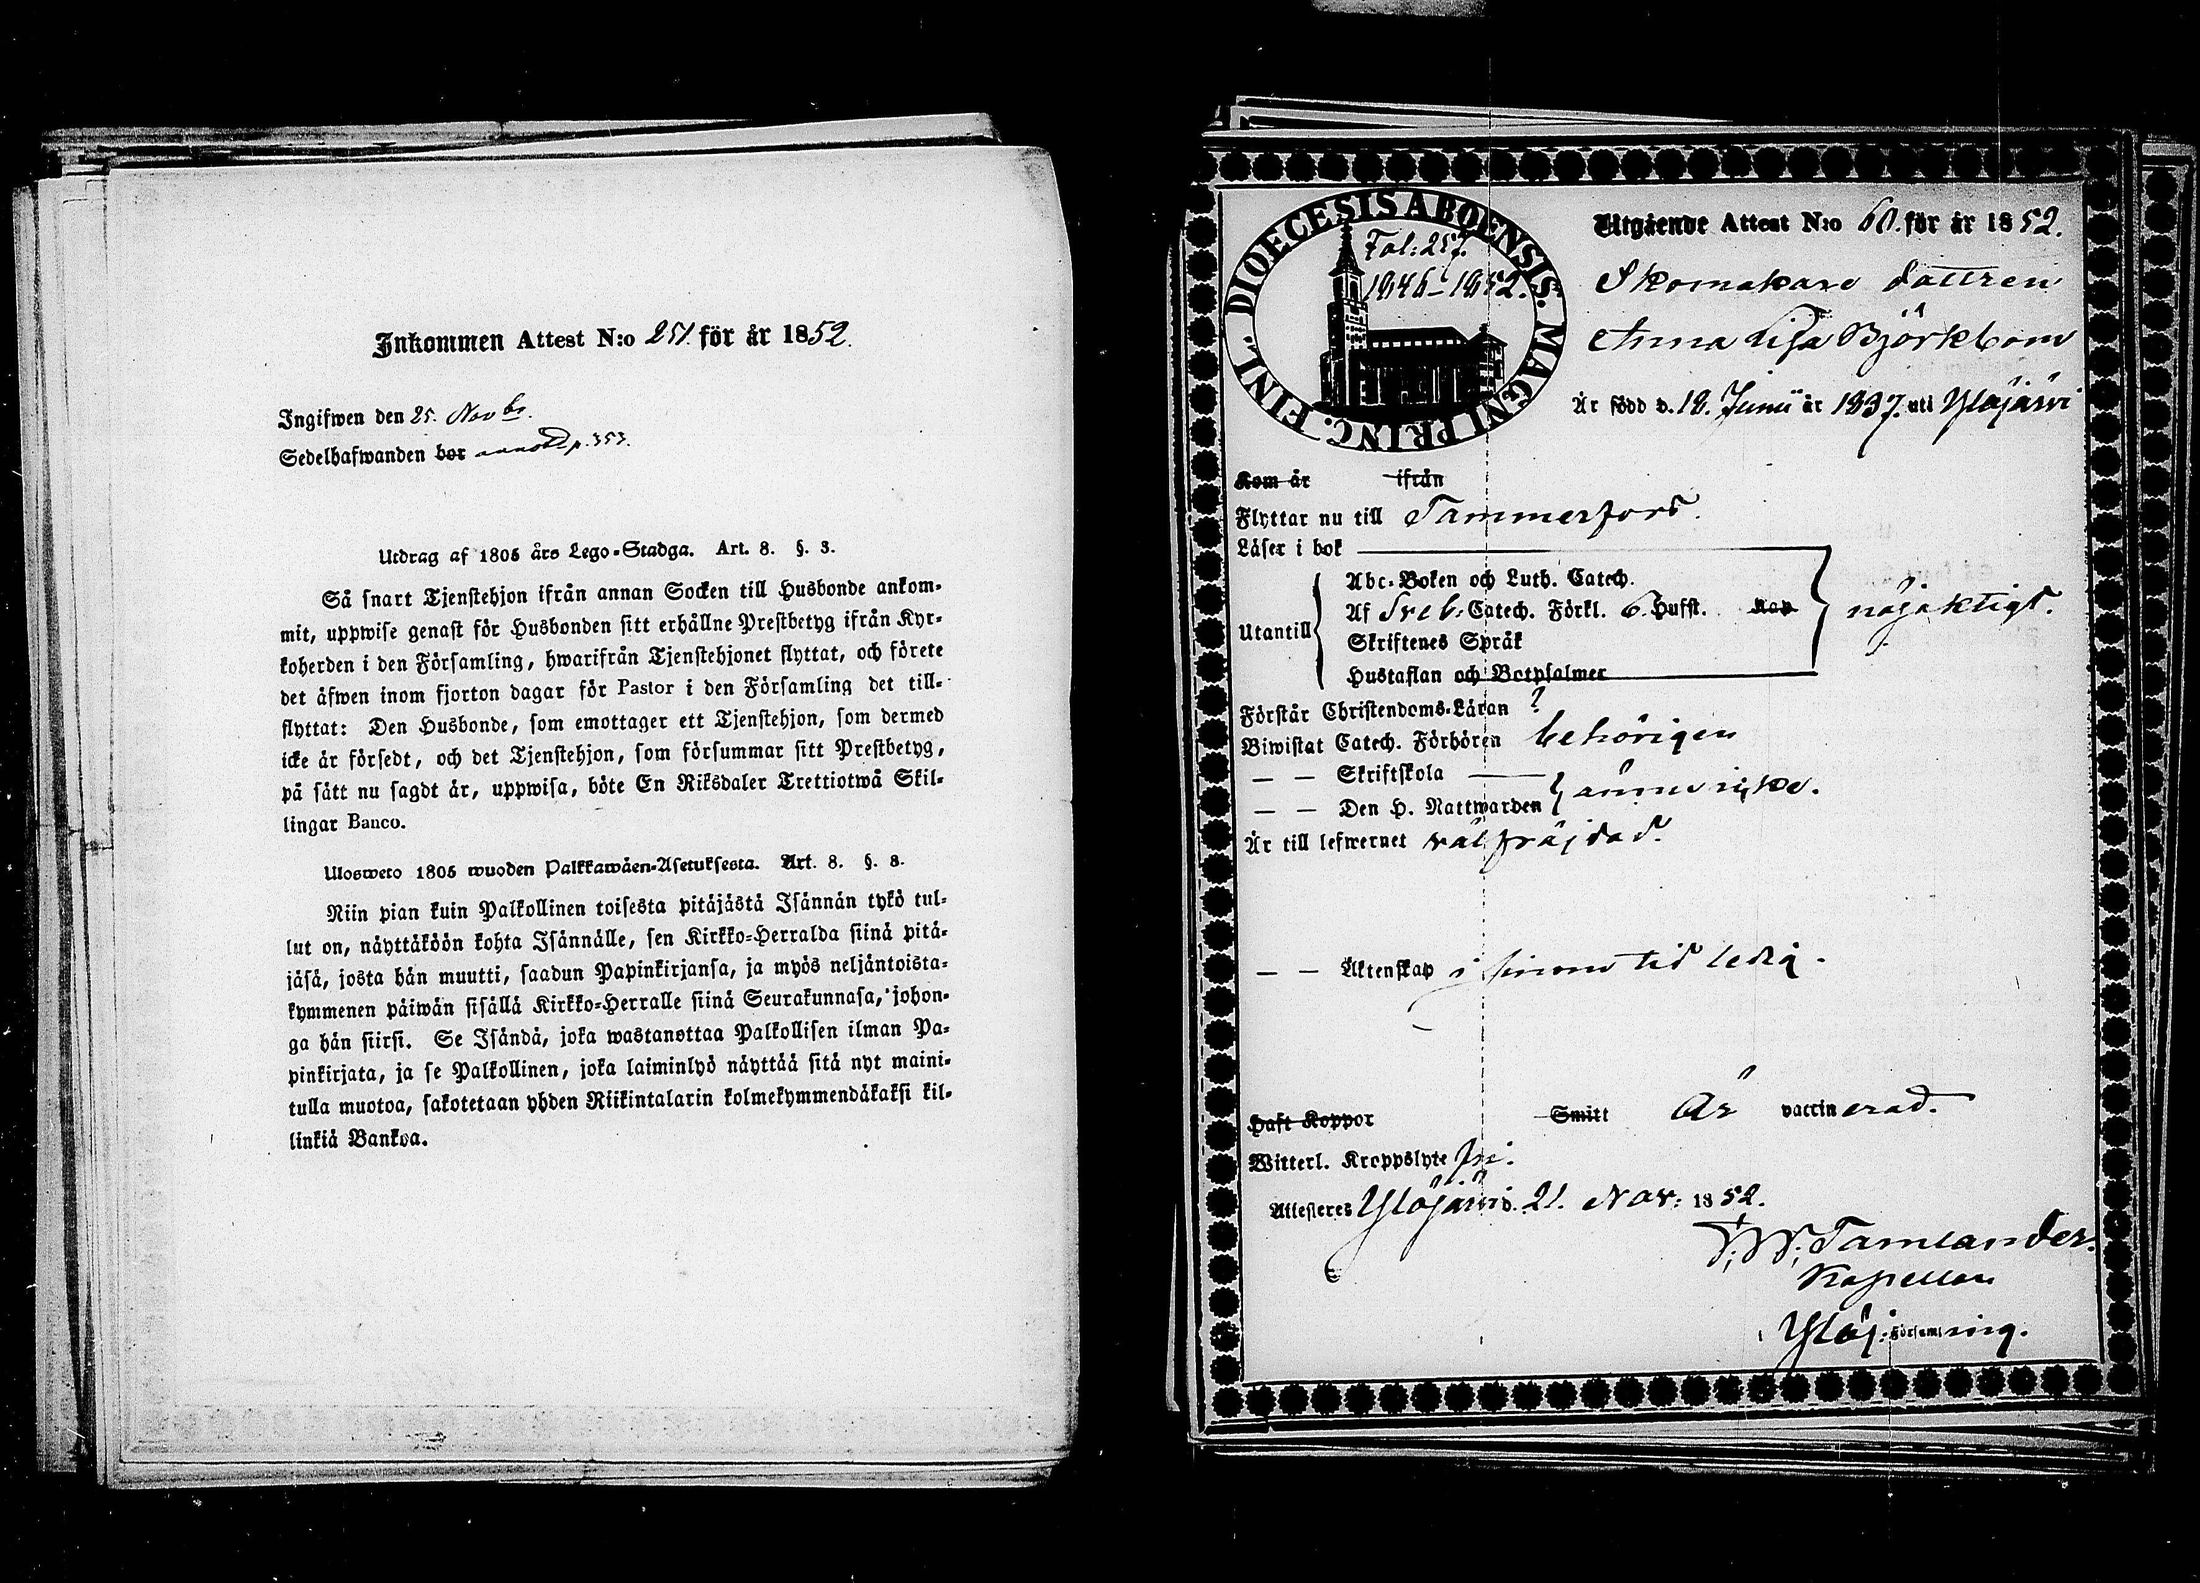 Inkommen Attest N:o 251. för år 1852.
Ingifwen den 25. Novbr.
Sedelhafwanden bor annot. p. 353.
Utdrag af 1805 års Lego-Stadga. Art. 8. §. 3.
Så snart Tjenstehjon ifrån annan Socken till Husbonde ankom-
mit, uppwise genast för Husbonden sitt erhållne Prestbetyg ifrån Kyr-
koherden i den Församling, hwarifrån Tjenstehjonet flyttat, och förete
det äfwen inom fjorton dagar för Pastor i den Församling det till-
flyttat: Den Husbonde, som emottager ett Tjenstehjon, som dermed
icke är försedt, och det Tjenstehjon, som försummar sitt Prestbetyg,
på sätt nu sagdt är, uppwisa, böte En Riksdaler Trettiotwå Skil-
lingar Banco.
Ulosweto 1805 wuoden Palkkawäen-Asetuksesta. Art. 8. §. 3.
Niin pian kuin Palkollinen toisesta pitäjästä Isännän tykö tul-
lut on, näyttäköön kohta Isännälle, sen Kirkko-Herralda siinä pitä-
jäsä, josta hän muutti, saadun Papinkirjansa, ja myös neljäntoista-
kymmenen päiwän sisällä Kirkko-Herralle siinä Seurakunnasa, johon-
ga hän siirsi. Se Isändä, joka wastanottaa Palkollisen ilman Pa-
pinkirjata, ja se Palkollinen, joka laiminlyö näyttää sitä nyt maini-
tulla muotoa, sakotetaan yhden Riikintalarin kolmekymmendäkaksi kil-
linkiä Bankoa.
DIOECESIS ABOENSIS. MAGNI PRINC. FINL.
Fol: 257.
1846-1852.
Utgående Attest N:o 60. för år 1852.
Skomakare dottren
Anna Lisa Björkbom
Är född d. 18. Junii år 1837. uti Ylöjärvi
Kom år ifrån
Flyttar nu till Tammerfors.
Läser i bok
Abc-Boken och Luth. Catech.
Af Sveb. Catech. Förkl. 6. Hufst. Kap
Utantill
Skriftenes Språk
Hustaflan och Botpsalmer
nöjaktigt.
Förstår Christendoms-Läran ?
Biwistat Catech. Förhören behörigen
— — Skriftskola
— — Den H. Nattwarden ännu icke.
Är till lefwernet välfräjdad.
— — Äktenskap i sinom tid ledig.
Haft Koppor Smitt Är vaccinerad.
Witterl. Kroppslyte fri.
Attesteres Ylöjärvi d. 21. Nov: 1852.
F. W. Tamlander.
Kapellan
Ylöj. Församling.